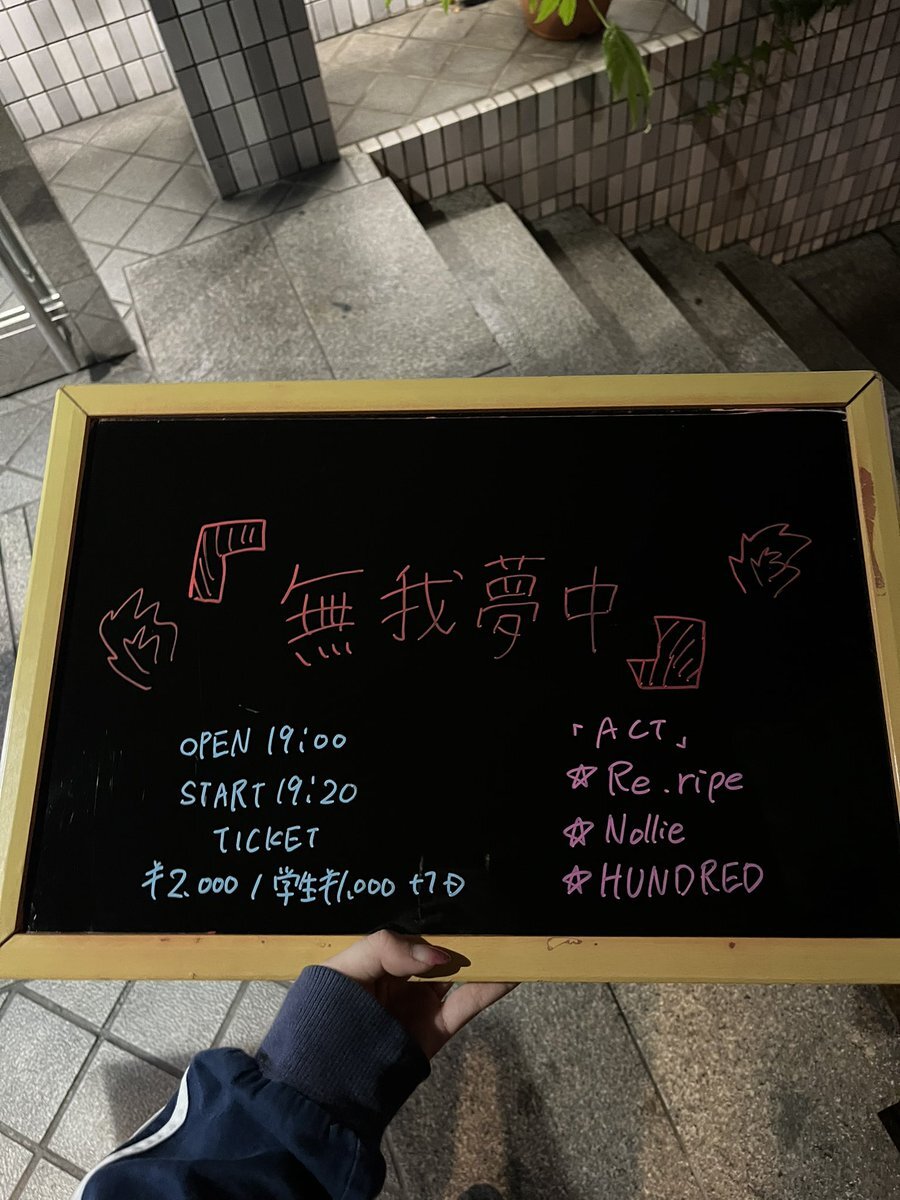 『無我夢中』
OPEN 19:00
START 19:20
TICKET
¥2.000 / 学生¥1,000 +1D
「ACT」
☆ Re.ripe
☆ Nollie
☆ HUNDRED